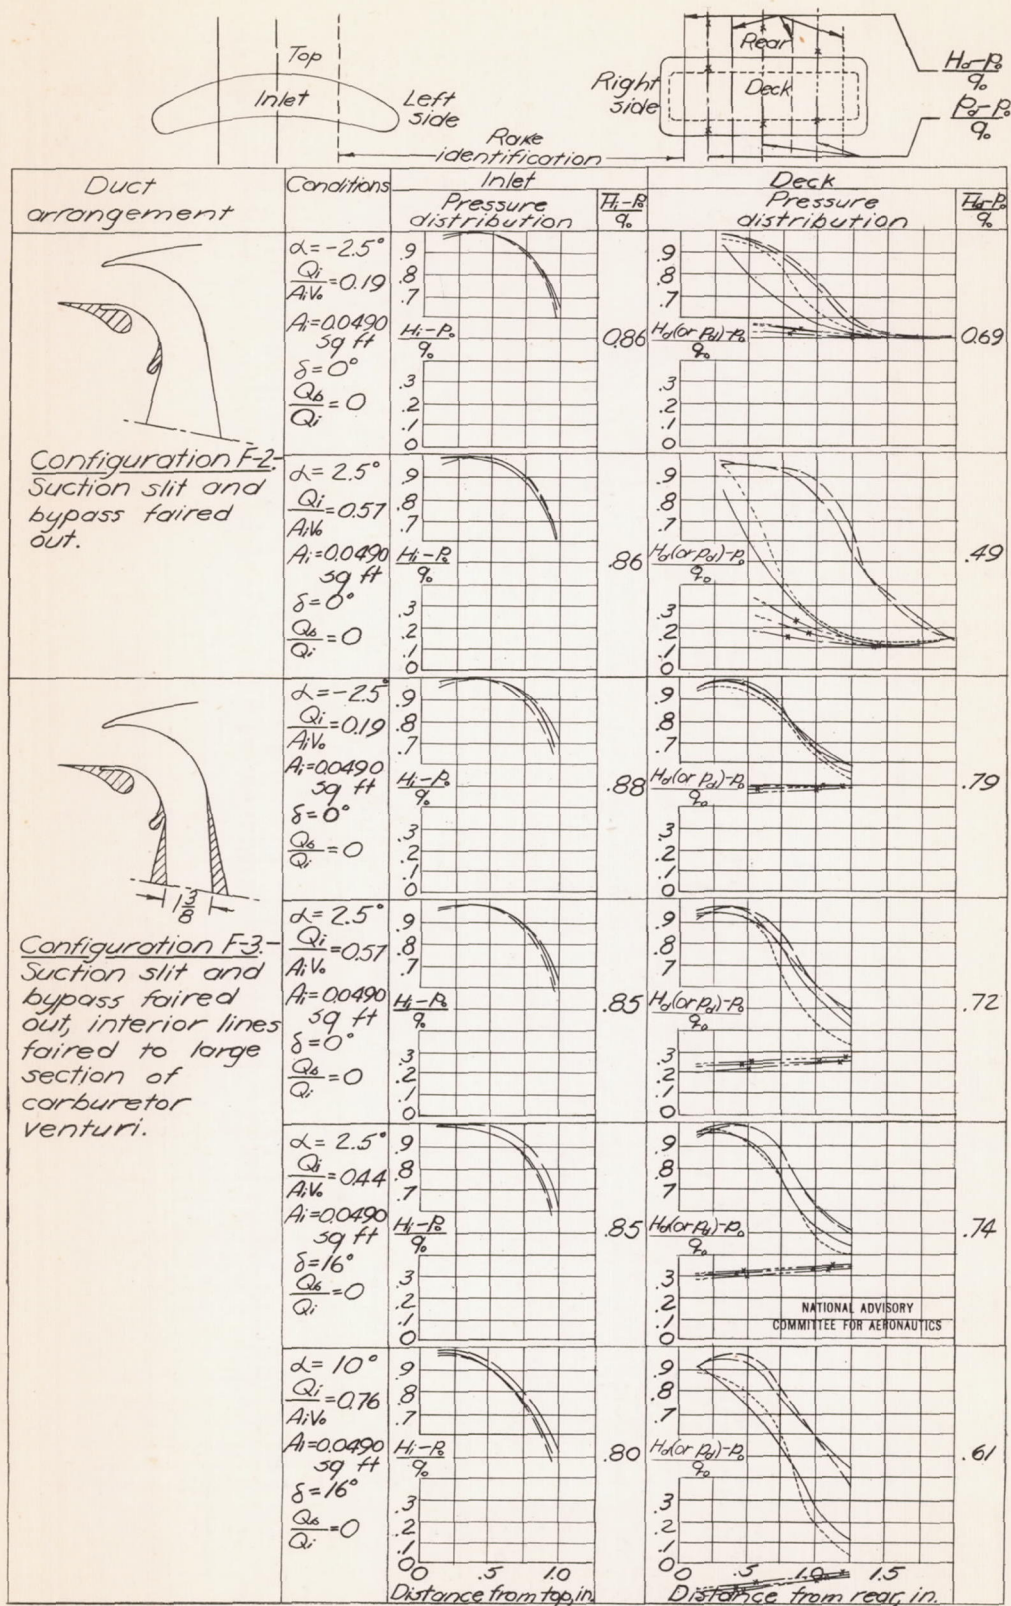 Top
Inlet
Left side
Rear
Deck
Right side
Rake identification
Hd-Po/qo
Pd-Po/qo
Duct arrangement
Conditions
Inlet
Pressure distribution
Hi-Po/qo
Deck
Pressure distribution
Hd-Po/qo
Configuration F-2.-
Suction slit and
bypass faired
out.
α=-2.5°
Qi/AiVo=0.19
Ai=0.0490
sq ft
δ=0°
Qb/Qi=0
.9
.8
.7
Hi-Po/qo
.3
.2
.1
0
0.86
.9
.8
.7
Hd(or Pd)-Po/qo
.3
.2
.1
0
0.69
α=2.5°
Qi/AiVo=0.57
Ai=0.0490
sq ft
δ=0°
Qb/Qi=0
.9
.8
.7
Hi-Po/qo
.3
.2
.1
0
.86
.9
.8
.7
Hd(or Pd)-Po/qo
.3
.2
.1
0
.49
1 3/8
Configuration F-3.-
Suction slit and
bypass faired
out, interior lines
faired to large
section of
carburetor
venturi.
α=-2.5°
Qi/AiVo=0.19
Ai=0.0490
sq ft
δ=0°
Qb/Qi=0
.9
.8
.7
Hi-Po/qo
.3
.2
.1
0
.88
.9
.8
.7
Hd(or Pd)-Po/qo
.3
.2
.1
0
.79
α=2.5°
Qi/AiVo=0.57
Ai=0.0490
sq ft
δ=0°
Qb/Qi=0
.9
.8
.7
Hi-Po/qo
.3
.2
.1
0
.85
.9
.8
.7
Hd(or Pd)-Po/qo
.3
.2
.1
0
.72
α=2.5°
Qi/AiVo=0.44
Ai=0.0490
sq ft
δ=16°
Qb/Qi=0
.9
.8
.7
Hi-Po/qo
.3
.2
.1
0
.85
.9
.8
.7
Hd(or Pd)-Po/qo
.3
.2
.1
0
.74
NATIONAL ADVISORY
COMMITTEE FOR AERONAUTICS
α=10°
Qi/AiVo=0.76
Ai=0.0490
sq ft
δ=16°
Qb/Qi=0
.9
.8
.7
Hi-Po/qo
.3
.2
.1
0
.80
.9
.8
.7
Hd(or Pd)-Po/qo
.3
.2
.1
0
.61
0 .5 1.0
Distance from top, in.
0 .5 1.0 1.5
Distance from rear, in.